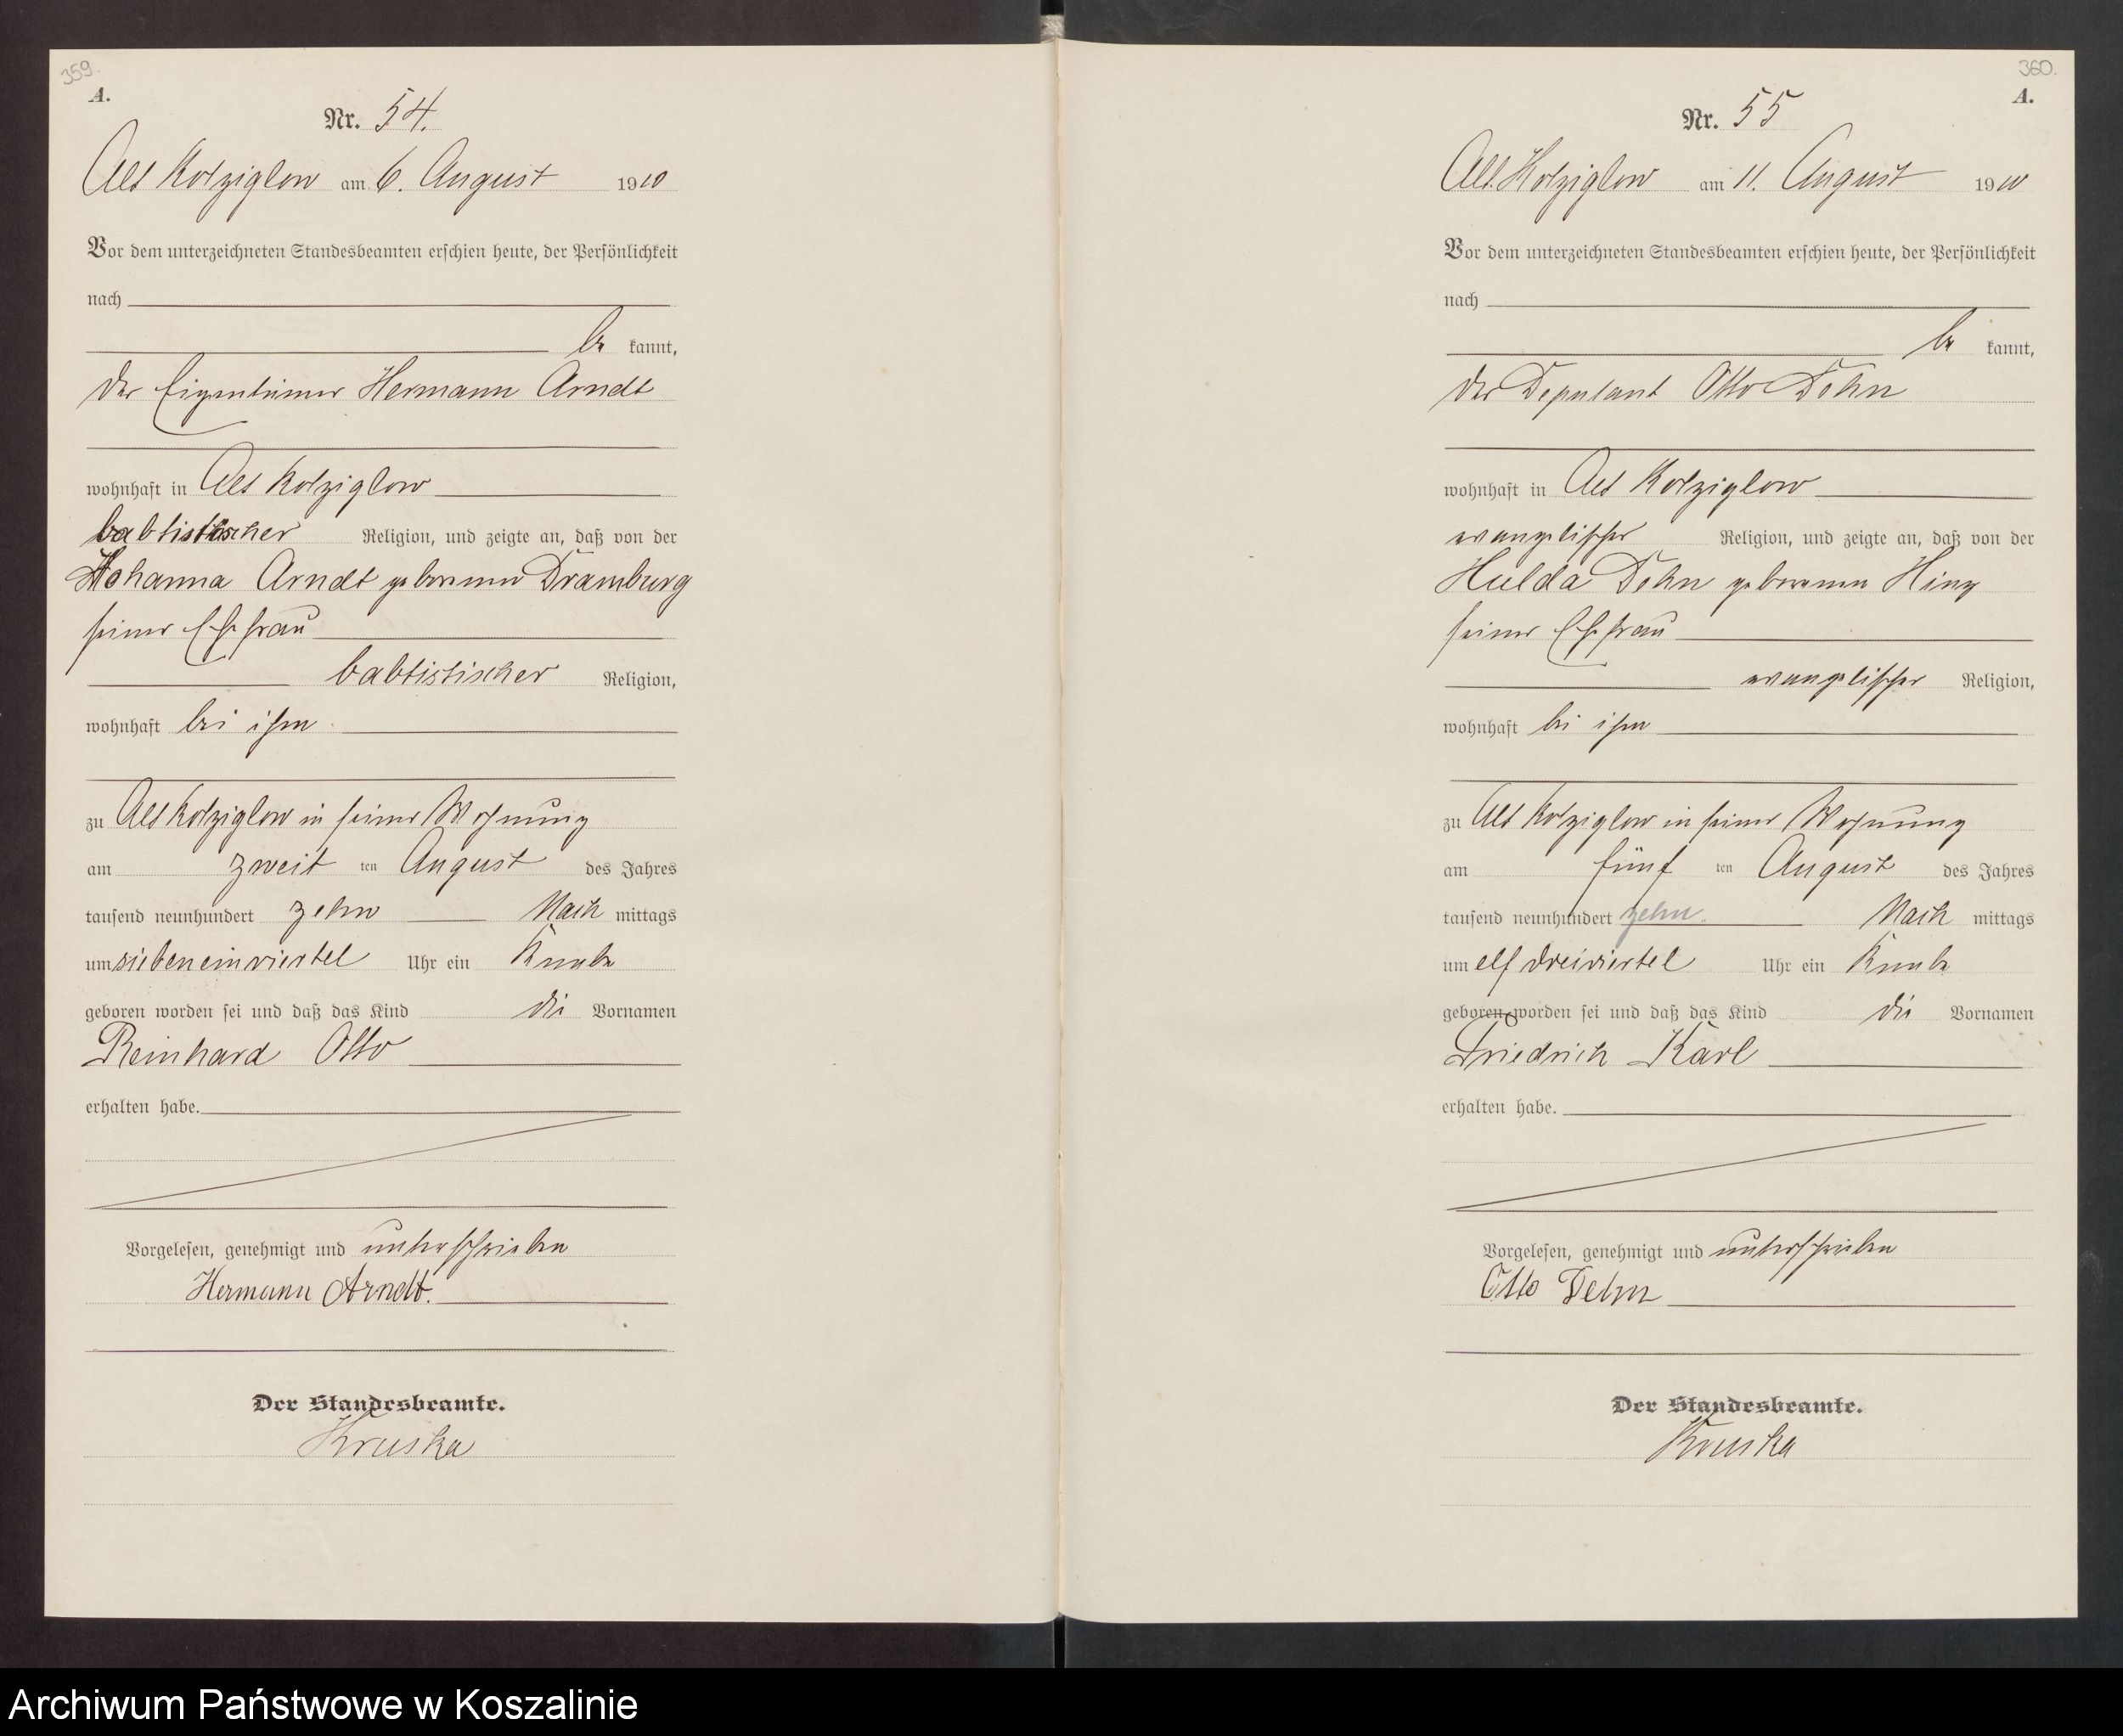 359.
A.
Nr. 54.
Alt Kolziglow am 6. August 1910
Vor dem unterzeichneten Standesbeamten erschien heute, der Persönlichkeit
nach
be kannt,
der Eigentümer Hermann Arndt
wohnhaft in Alt Kolziglow
babtistischer Religion, und zeigte an, daß von der
Johanna Arndt geborenen Dramburg
seiner Ehefrau
babtistischer Religion,
wohnhaft bei ihm
zu Alt Kolziglow in seiner Wohnung
am zweit ten August des Jahres
tausend neunhundert zehn Nach mittags
um siebeneinviertel Uhr ein Knabe
geboren worden sei und daß das Kind die Vornamen
Reinhard Otto
erhalten habe.
Vorgelesen, genehmigt und unterschrieben
Hermann Arndt.
Der Standesbeamte.
Kruska
360.
A.
Nr. 55
Alt Kolziglow am 11. August 1910
Vor dem unterzeichneten Standesbeamten erschien heute, der Persönlichkeit
nach
be kannt,
der Deputant Otto Dehn
wohnhaft in Alt Kolziglow
evangelischer Religion, und zeigte an, daß von der
Hulda Dehn geborenen
seiner Ehefrau
evangelischer Religion,
wohnhaft bei ihm
zu Alt Kolziglow in seiner Wohnung
am fünf ten August des Jahres
tausend neunhundert zehn. Nach mittags
um elf dreiviertel Uhr ein Knabe
geboren worden sei und daß das Kind die Vornamen
Friedrich Karl
erhalten habe.
Vorgelesen, genehmigt und unterschrieben
Otto Dehn
Der Standesbeamte.
Kruska
Archiwum Państwowe w Koszalinie